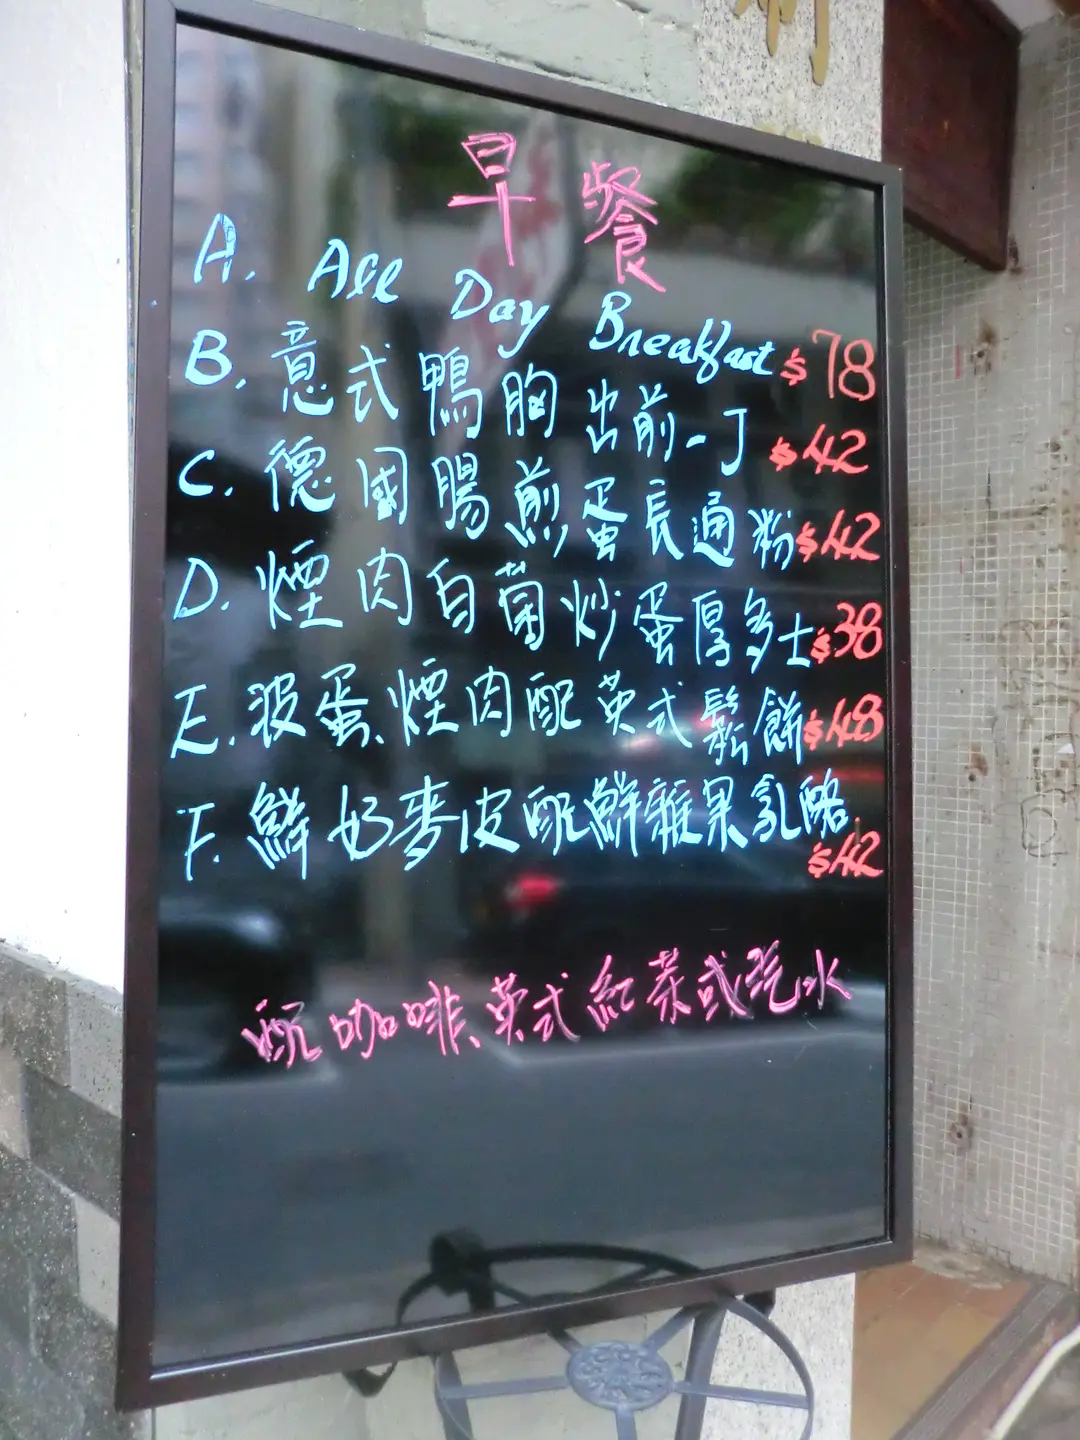 早餐
A. All Day Breakfast $78
B. 意式鴨胸出前一丁 $42
C. 德國腸煎蛋長通粉 $42
D. 煙肉白菌炒蛋厚多士 $38
E. 波蛋、煙肉配英式鬆餅 $48
F. 鮮奶麥皮配鮮雜果乳酪 $42
配咖啡、英式紅茶或汽水